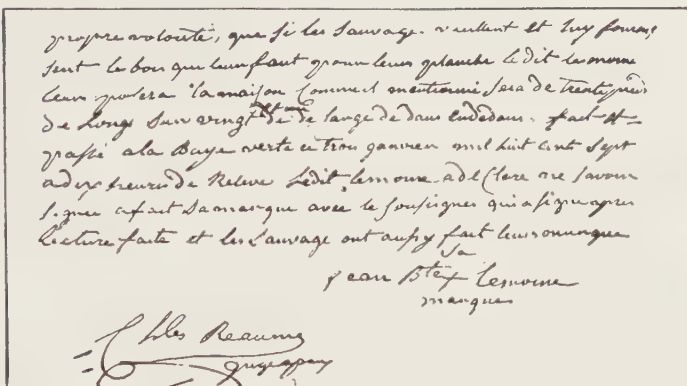 propre volonté, que si les Sauvage veullent et luy fournis
sent le bois que leur faut pour leur planche le dit lemoine
leur posera la maison Comme il mentionné sera de trente pieds
de Long Sur vingt de de large de dans en dedans. fait et
passé a la Baye verte ce trois janvier mil huit cent sept
a dix heures de Relevé Ledit lemoine a déClaré ne savoir
signer a fait Sa marque avec le Sousigner qui a signé apres
lecture faite et les Sauvage ont aussy fait leurs marque
Sa
jean Bte x lemoine
marque
Chles Reaume